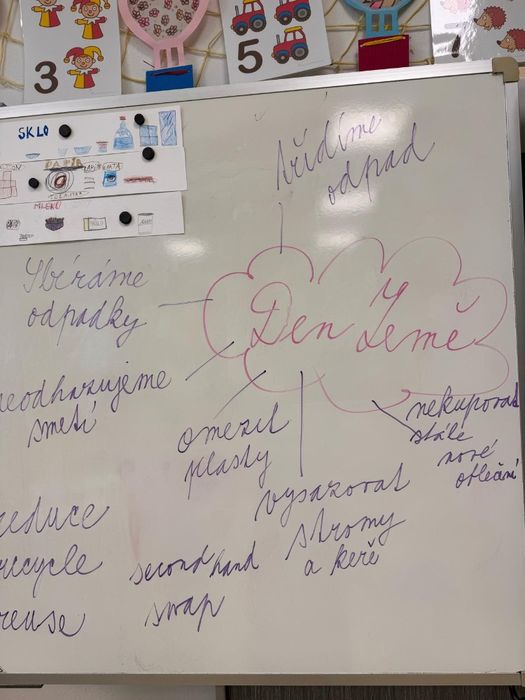 3
5
SKLO
PAPÍR
MLÉKO
třídíme
odpad
Sbíráme
odpadky
Den Země
neodhazujeme
smetí
omezit
plasty
vysazovat
stromy
a keře
nekupovat
stále
nové
oblečení
reduce
recycle
reuse
second hand
swap